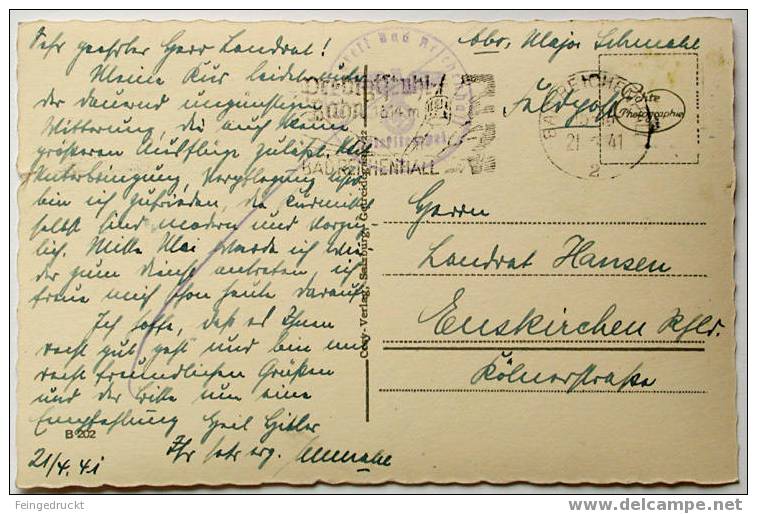 Sehr geehrter Herr Landrat!
Meine Kur leidet unter
der dauernd ungünstigen
Witterung, die auch keine
größeren Ausflüge zuläßt. Mit
Unterbringung, Verpflegung usw.
bin ich zufrieden, die Kurmittel
selbst sind modern und vorzüg-
lich. Mitte Mai werde ich wie-
der zum Dienst antreten, ich
freue mich schon heute darauf.
Ich hoffe, daß es Ihnen
recht gut geht und bin mit
recht freundlichen Grüßen
und der Bitte um eine
Empfehlung Heil Hitler
Ihr sehr erg. Schmahl
21/4.41
B 202
Cosy-Verlag, Salzburg, Getreidegasse 22
Abs. Major Schmahl
Feldpost
BAD REICHENHALL
21.4.41
2
Echte
Photographie
BAD REICHENHALL
Herrn
Landrat Hansen
Euskirchen Rhld.
Kölnerstraße
Feingedruckt
www.delcampe.net